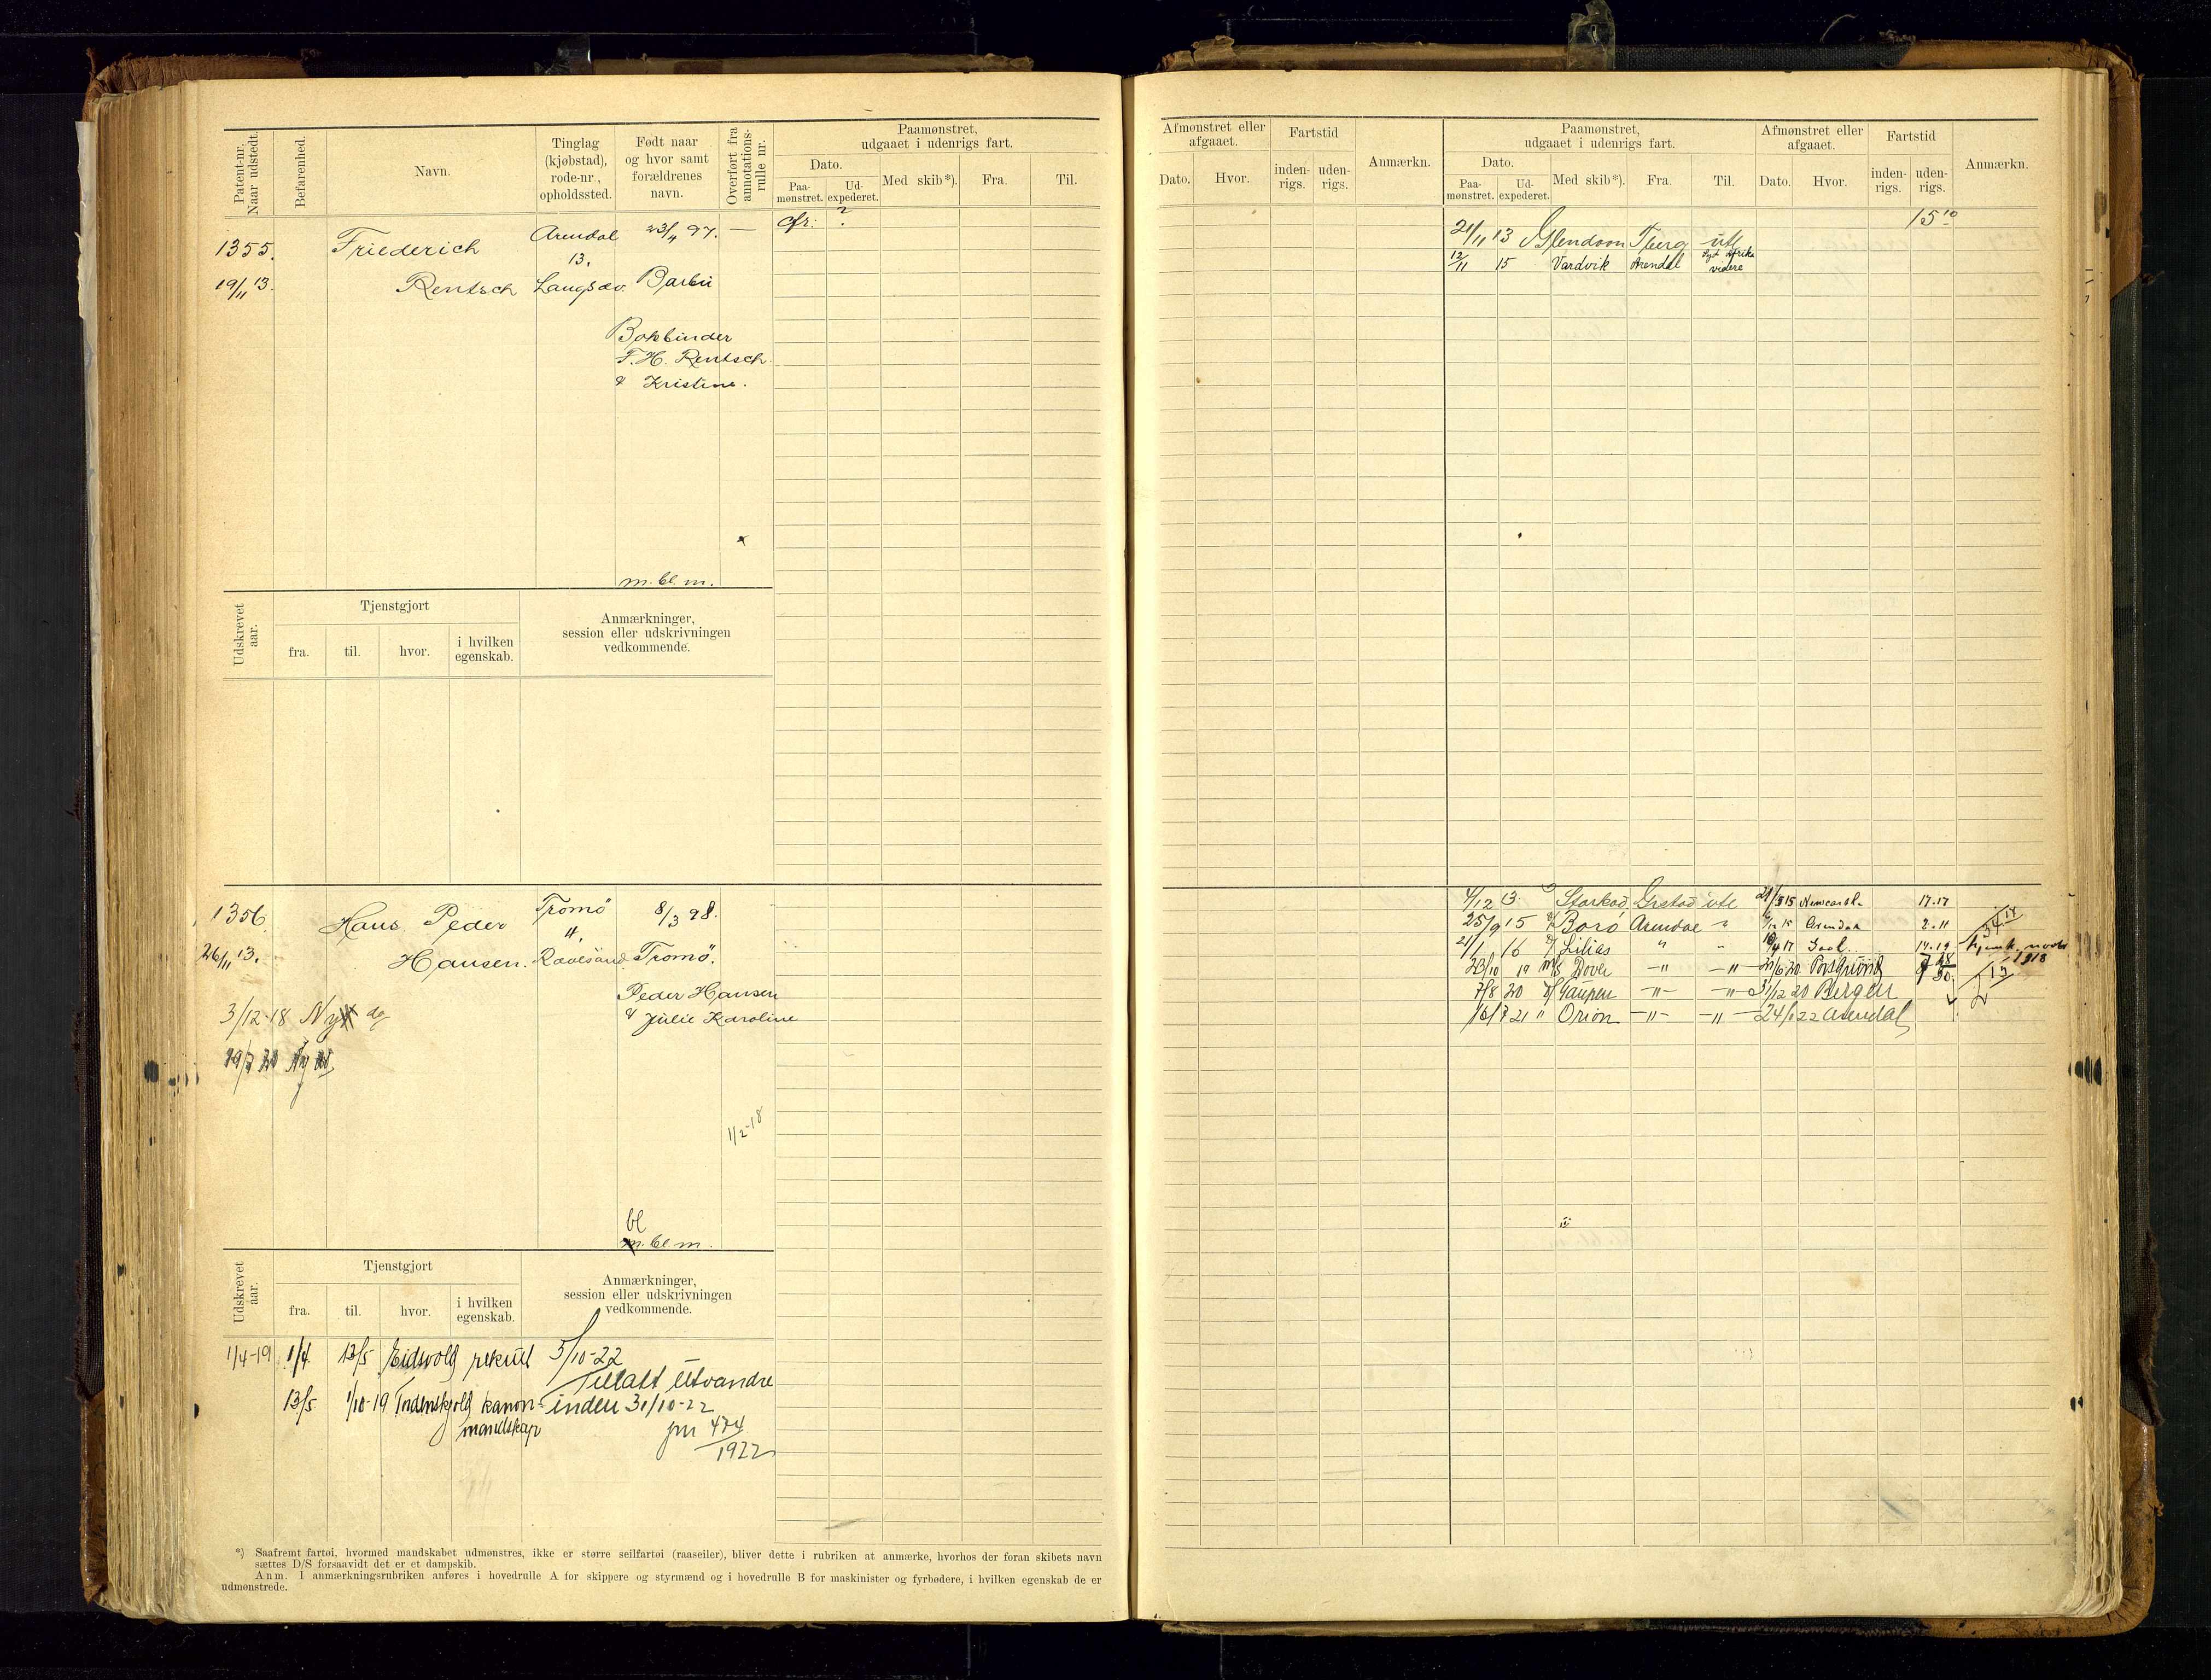 Patent-nr. Naar udstedt.
Befarenhed.
Navn.
Tinglag (kjøbstad), rode-nr., opholdssted.
Født naar og hvor samt forældrenes navn.
Overført fra annotations-rulle nr.
Paamønstret, udgaaet i udenrigs fart.
Dato.
Paa-mønstret.
Ud-expederet.
Med skib*).
Fra.
Til.
1355.
Friederich
Arendal
23/4 97.
—
cfr: ?
13.
19/11 13.
Rentsch
Langsæv.
Barbu
Bokbinder
F. H. Rentsch
& Kristine.
x
m. bl. m.
Udskrevet aar.
Tjenstgjort
fra.
til.
hvor.
i hvilken egenskab.
Anmærkninger, session eller udskrivningen vedkommende.
1356.
Hans Peder
Tromö
8/3 98.
4.
26/11 13.
Hansen.
Rævesand
Tromö.
Peder Hansen
& Julie Karoline
3/12-18 Ny
1/2-18
bl
m. bl m.
Udskrevet aar.
Tjenstgjort
fra.
til.
hvor.
i hvilken egenskab.
Anmærkninger, session eller udskrivningen vedkommende.
1/4-19 1/4 13/5 Eidsvold rekrut 5/10-22
Tillatt utvandre
13/5 1/10-19 Tordenskjold kanon- inden 31/10-22
mandskap
jnr 474
1922
*) Saafremt fartøi, hvormed mandskabet udmønstres, ikke er større seilfartøi (raaseiler), bliver dette i rubriken at anmærke, hvorhos der foran skibets navn
sættes D/S forsaavidt det er et dampskib.
Anm. I anmærkningsrubriken anføres i hovedrulle A for skippere og styrmænd og i hovedrulle B for maskinister og fyrbødere, i hvilken egenskab de er
udmønstrede.
Afmønstret eller afgaaet.
Dato.
Hvor.
Fartstid
inden-rigs.
uden-rigs.
Anmærkn.
Paamønstret, udgaaet i udenrigs fart.
Dato.
Paa-mønstret.
Ud-expederet.
Med skib*).
Fra.
Til.
Afmønstret eller afgaaet.
Dato.
Hvor.
Fartstid
inden-rigs.
uden-rigs.
Anmærkn.
15 10
21/11 13 Glendoon Tberg ute
12/11 15 Vardvik Arendal Syd Afrika
videre
4/12 13 Storkad Grstad ute 15 Newcastle 17.17
25/9 15 Borö Arendal " 15 Arendal 2.11
21/1 16 Lilias " " 17 14.19
1918
23/10 19 m/s Dovre —"— —"— 20 Porsgrund
7/8 20 Gaupen —"— —"— 31/12 20 Bergen
21 " Orion —"— —"— 22 Arendal